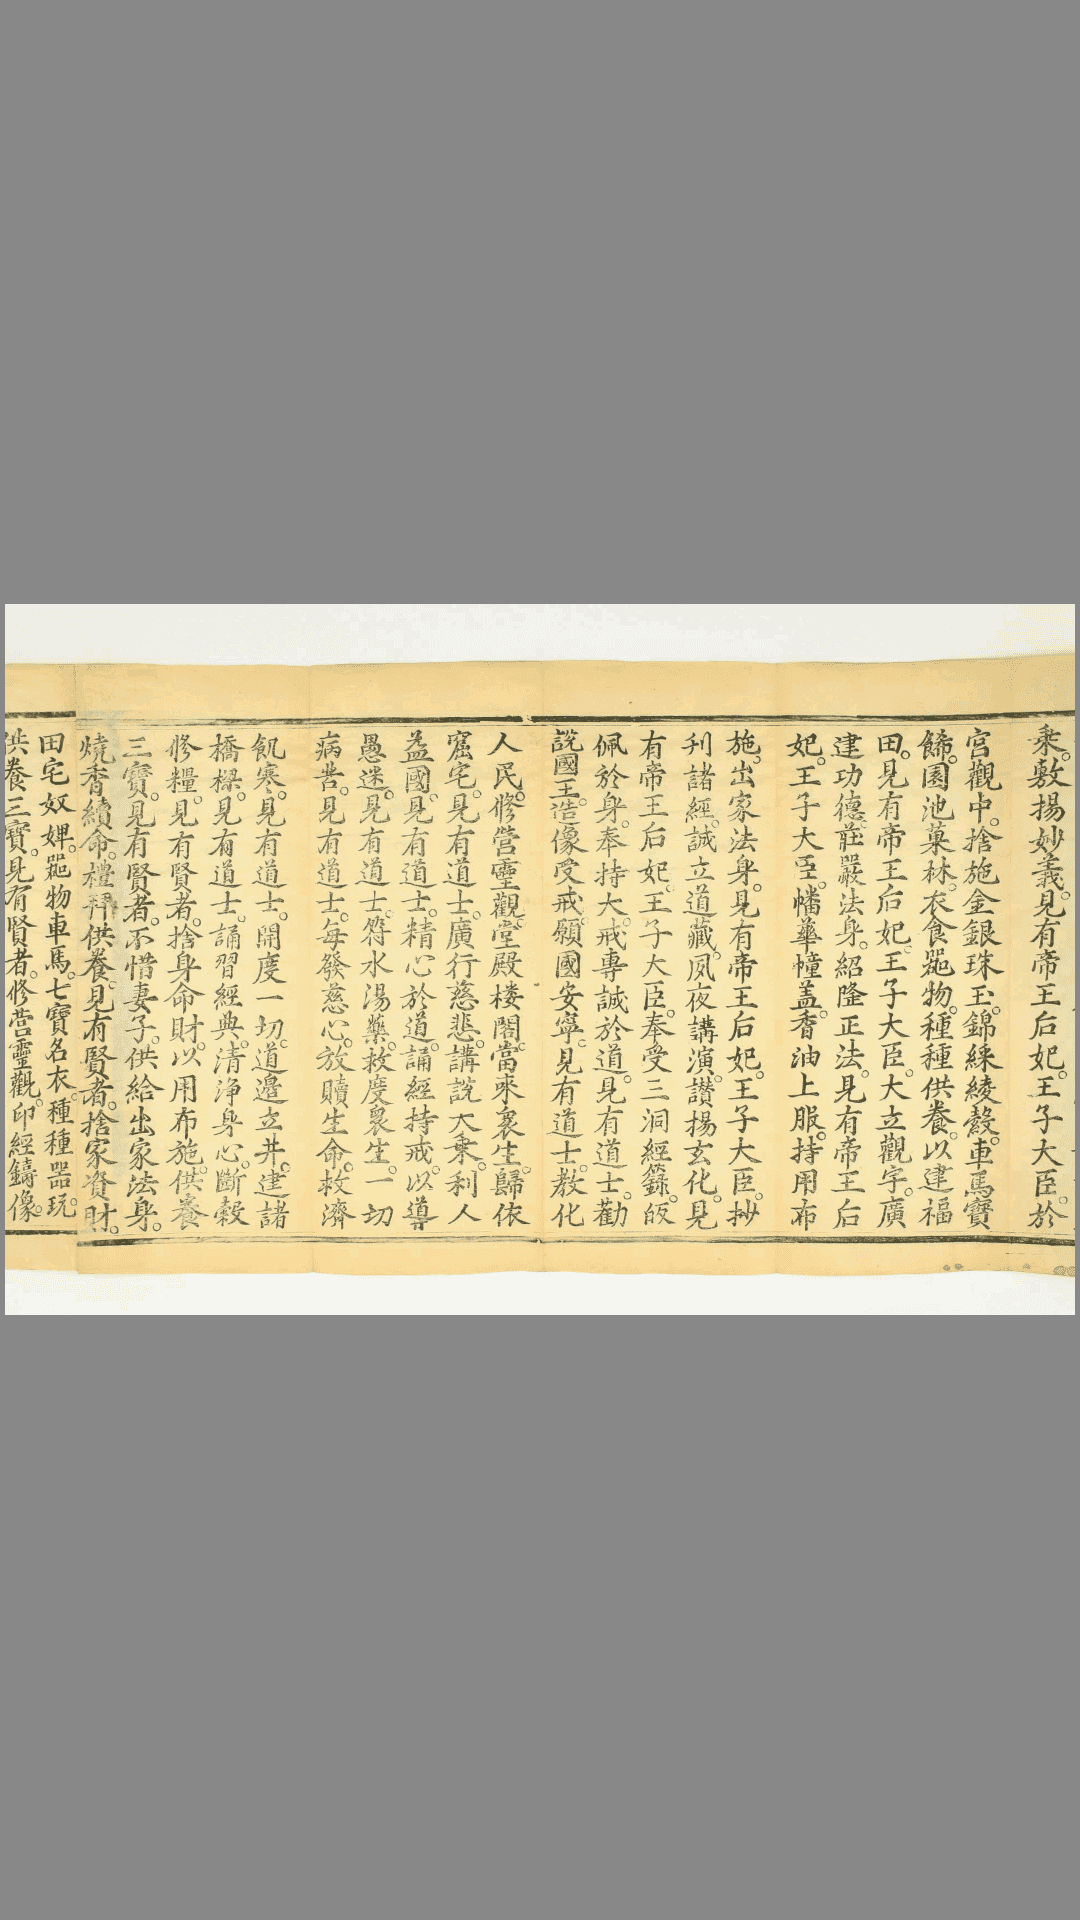 乘。敷揚妙義。見有帝王后妃。王子大臣。於
宮觀中。捨施金銀珠玉。錦綵綾縠。車馬寶
飾。園池菓林。衣食噐物。種種供養。以建福
田。見有帝王后妃。王子大臣。大立觀宇。廣
建功德。莊嚴法身。紹隆正法。見有帝王后
妃。王子大臣。幡華幢盖。香油上服。持用布
施。出家法身。見有帝王后妃。王子大臣。抄
刋諸經。誠立道藏。夙夜講演。讃揚玄化。見
有帝王后妃。王子大臣。奉受三洞經籙。皈
佩於身。奉持大戒。專誠於道。見有道士。勸
說國王。造像受戒。願國安寧。見有道士。教化
人民。修營靈觀。堂殿楼閣。當來衆生。歸依
窟宅。見有道士。廣行慈悲。講說大乗。利人
益國。見有道士。精心於道。誦經持戒。以導
愚迷。見有道士。符水湯藥。救度衆生。一切
病苦。見有道士。每發慈心。放贖生命。救濟
飢寒。見有道士。開度一切。道邊立井。建諸
橋樑。見有道士。誦習經典。清淨身心。斷穀
修糧。見有賢者。捨身命財。以用布施。供養
三寶。見有賢者。不惜妻子。供給出家法身。
燒香續命。禮拜供養。見有賢者。捨家資財。
田宅奴婢。噐物車馬。七寶名衣。種種器玩。
供養三寶。見有賢者。修营靈觀。印經鑄像。